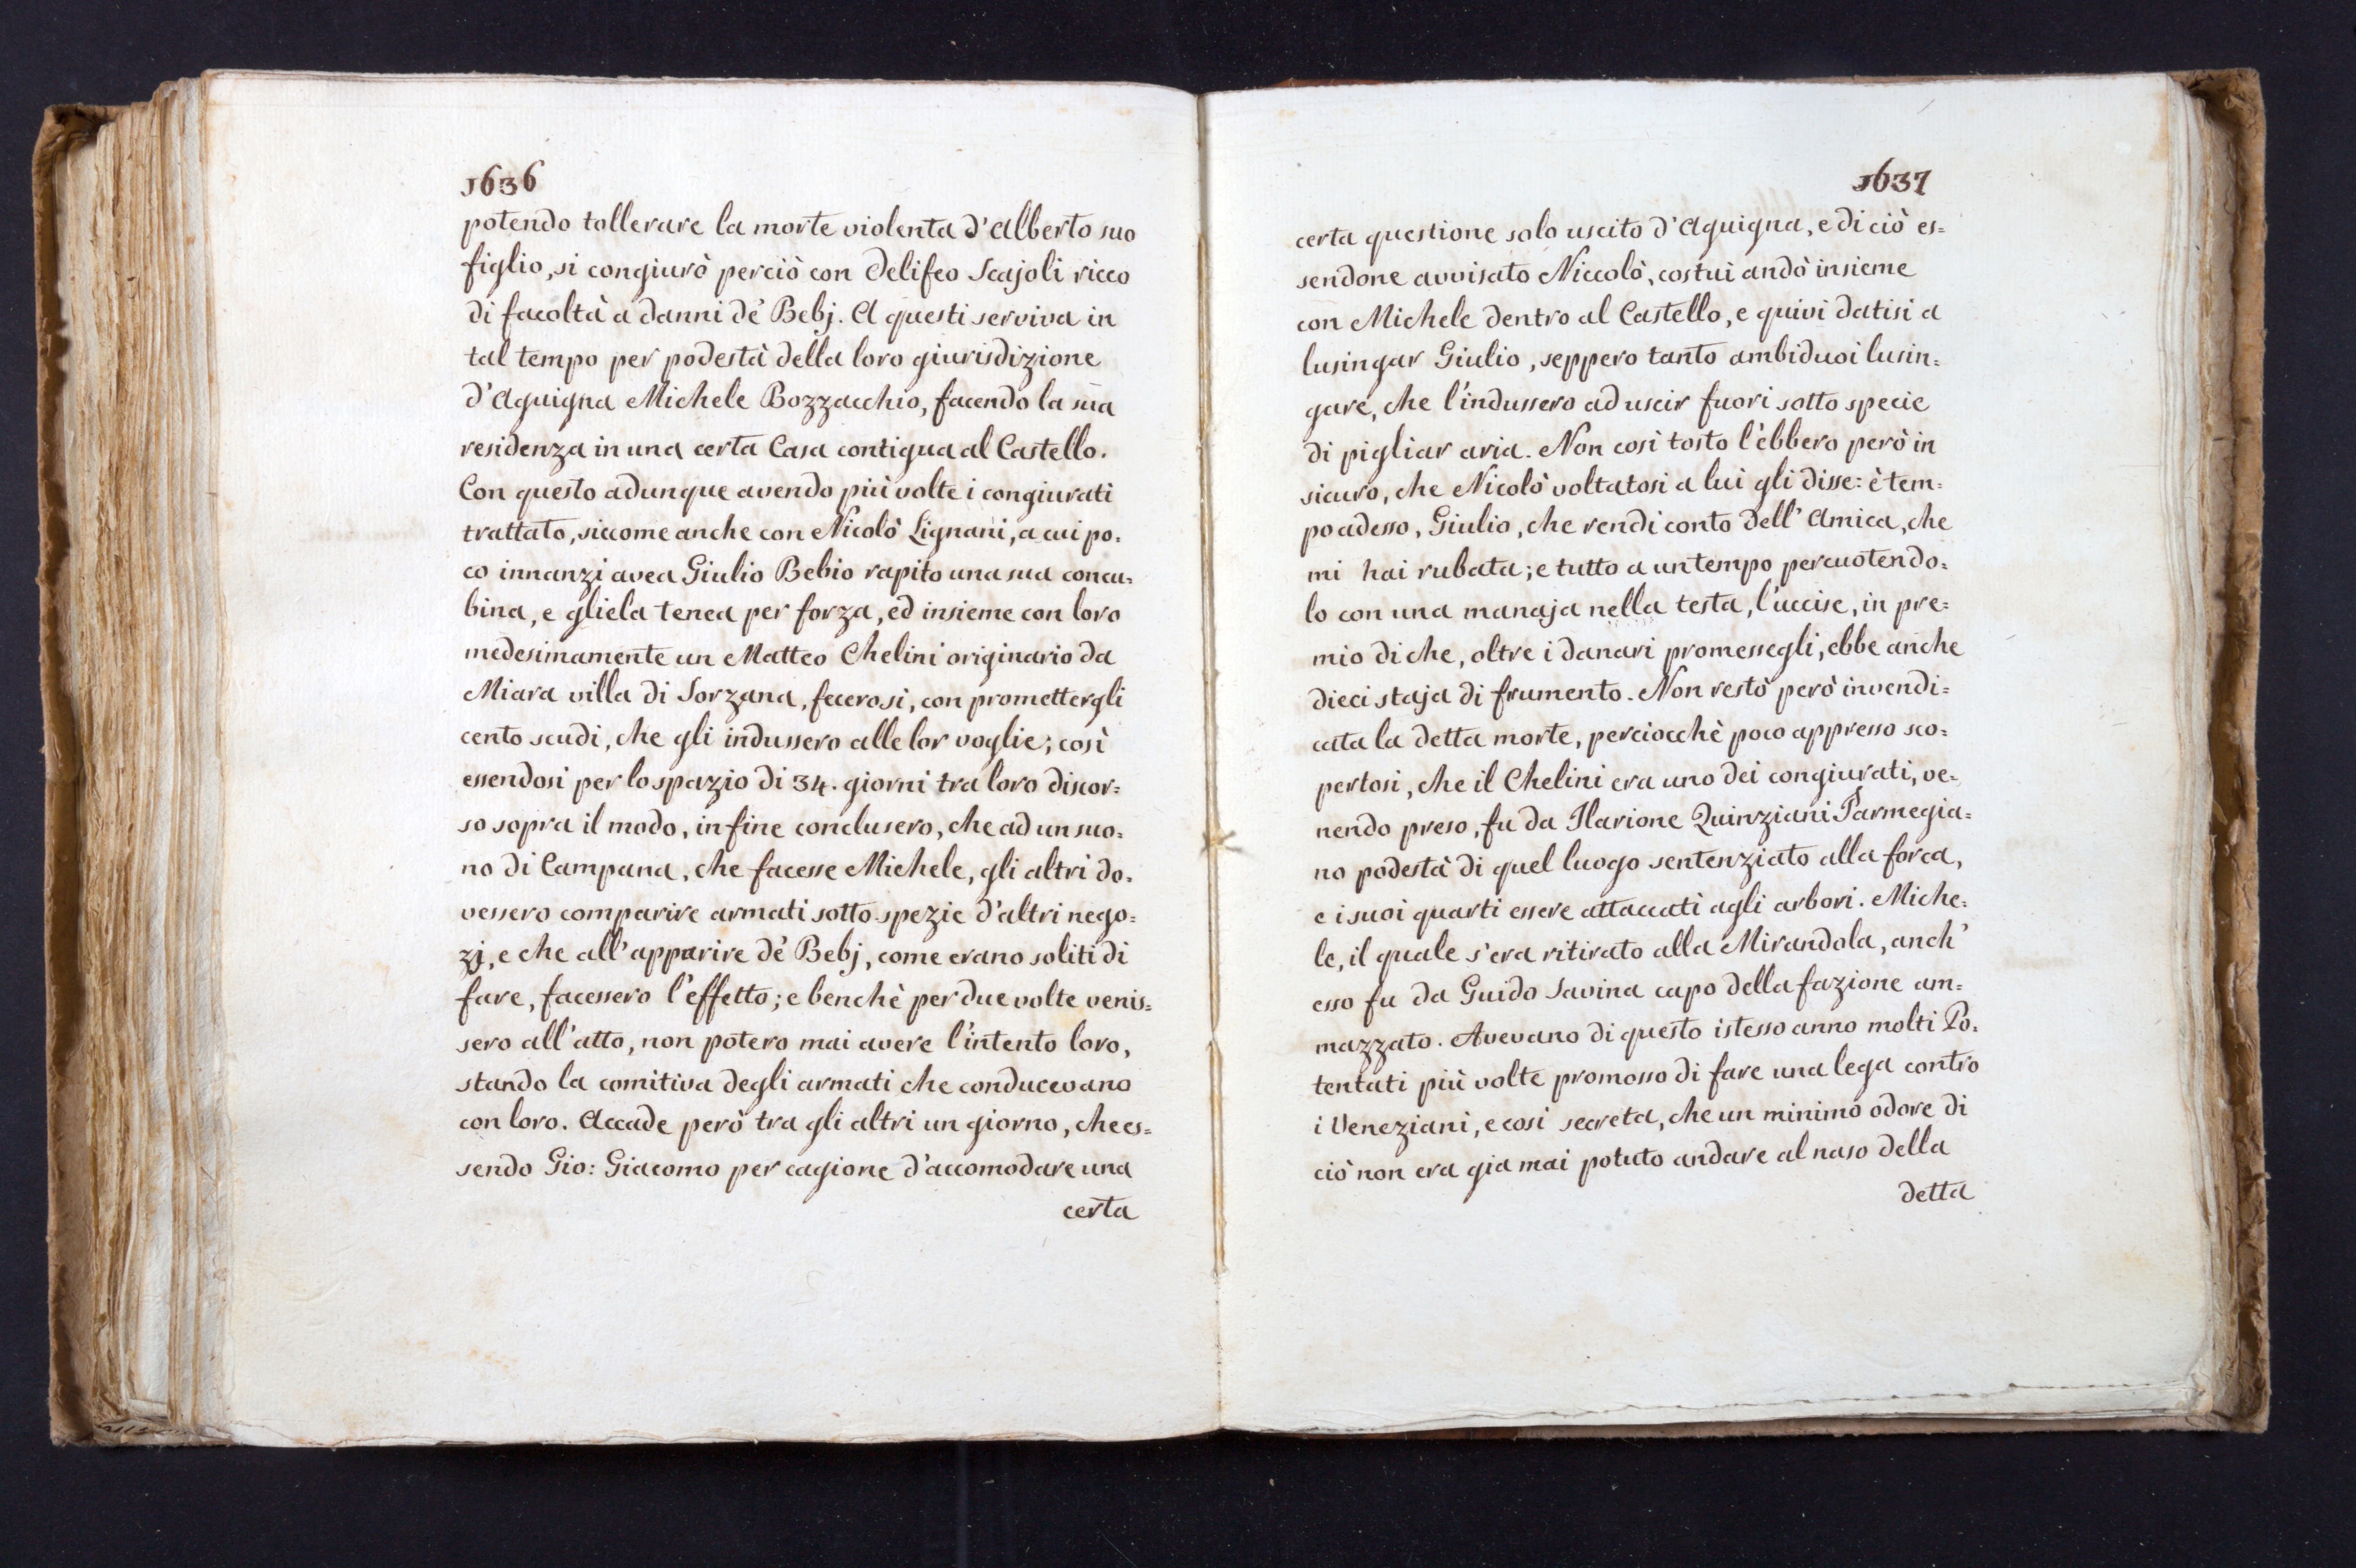 1636
potendo tollerare la morte violenta d'Alberto suo
figlio, si congiurò perciò con Delifeo Scajoli ricco
di facoltà a danni de' Bebj. A questi serviva in
tal tempo per podestà della loro giurisdizione
d'Aquigna Michele Bozzacchio, facendo la sua
residenza in una certa Casa contigua al Castello.
Con questo adunque avendo più volte i congiurati
trattato, siccome anche con Nicolò Lignani, a cui po=
co innanzi avea Giulio Bebio rapito una sua concu=
bina, e gliela tenea per forza, ed insieme con loro
medesimamente un Matteo Chelini originario da
Miara villa di Sorzana, fecerosi, con promettergli
cento scudi, che gli indussero alle lor voglie; così
essendosi per lo spazio di 34. giorni tra loro discor=
so sopra il modo, in fine conclusero, che ad un suo=
no di Campana, che facesse Michele, gli altri do=
vessero comparire armati sotto spezie d'altri nego=
zj, e che all'apparire de' Bebj, come erano soliti di
fare, facessero l'effetto; e benchè per due volte venis=
sero all'atto, non potero mai avere l'intento loro,
stando la comitiva degli armati che conducevano
con loro. Accade però tra gli altri un giorno, che es=
sendo Gio: Giacomo per cagione d'accomodare una
certa
1637
certa questione solo uscito d'Aquigna, e di ciò es=
sendone avvisato Niccolò, costui andò insieme
con Michele dentro al Castello, e quivi datisi a
lusingar Giulio, seppero tanto ambiduoi lusin=
gare, che l'indussero ad uscir fuori sotto specie
di pigliar aria. Non così tosto l'ebbero però in
sicuro, che Nicolò voltatosi a lui gli disse: è tem=
po adesso, Giulio, che rendi conto dell'Amica, che
mi hai rubata; e tutto a un tempo percuotendo=
lo con una manaja nella testa, l'uccise, in pre=
mio di che, oltre i danari promessegli, ebbe anche
dieci staja di frumento. Non restò però invendi=
cata la detta morte, perciocchè poco appresso sco=
pertosi, che il Chelini era uno dei congiurati, ve=
nendo preso, fu da Ilarione Quinziani Parmegia=
no podestà di quel luogo sentenziato alla forca,
e i suoi quarti essere attaccati agli arbori. Miche=
le, il quale s'era ritirato alla Mirandola, anch'
esso fu da Guido Savina capo della fazione am=
mazzato. Avevano di questo istesso anno molti Po=
tentati più volte promosso di fare una lega contro
i Veneziani, e così secreta, che un minimo odore di
ciò non era gia mai potuto andare al naso della
detta